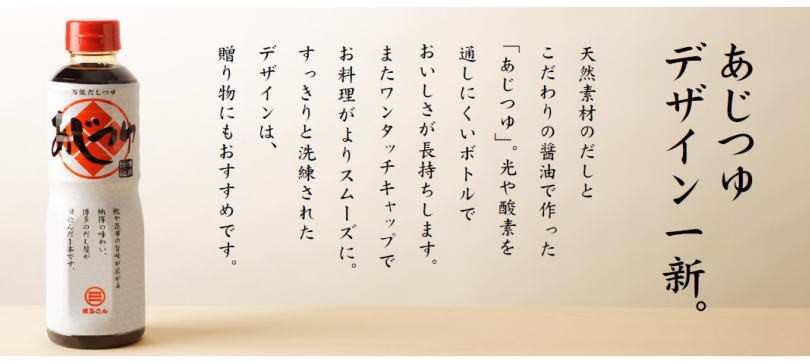 あじつゆ
デザイン一新。
天然素材のだしと
こだわりの醤油で作った
「あじつゆ」。光や酸素を
通しにくいボトルで
おいしさが長持ちします。
またワンタッチキャップで
お料理がよりスムーズに。
すっきりと洗練された
デザインは、
贈り物にもおすすめです。
万能だしつゆ
あじつゆ
鰹や昆布の旨味が広がる
納得の味わい。
博多のだし屋が
仕込んだ1本です。
まるさん